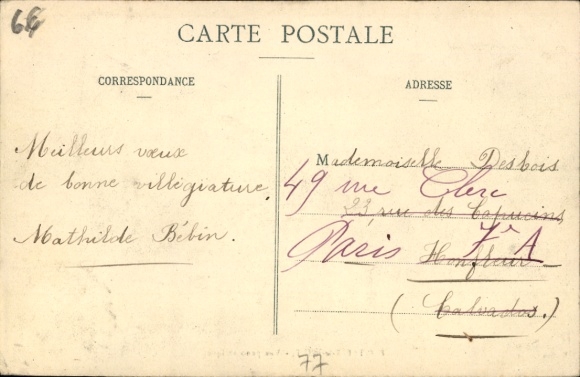 66
CARTE POSTALE
CORRESPONDANCE
Meilleurs vœux
de bonne villégiature.
Mathilde Bébin.
ADRESSE
Mademoiselle Desbois
49 rue Clerc
23, rue des Capucins
Paris 7e A
Honfleur
(Calvados.)
77